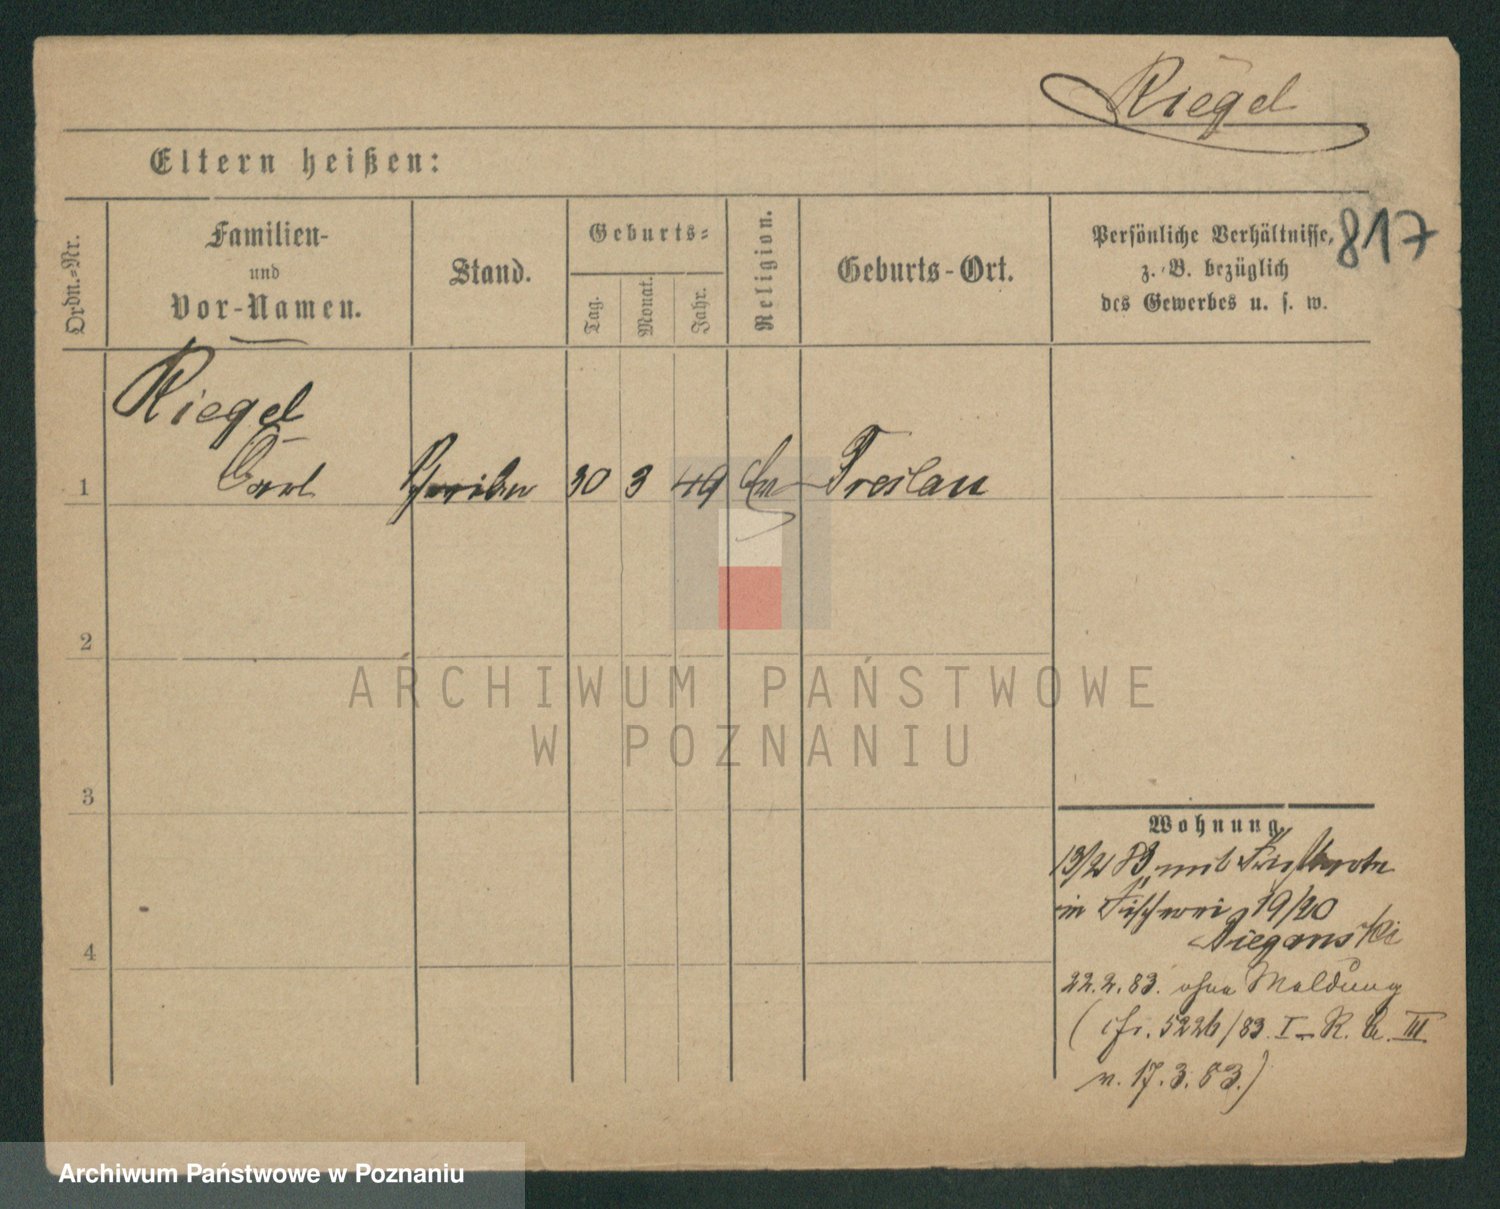 Riegel
Eltern heißen:
817
Ordn.-Nr.
Familien-
und
Vor-Namen.
Stand.
Geburts-
Tag.
Monat.
Jahr.
Religion.
Geburts-Ort.
Persönliche Verhältnisse,
z. B. bezüglich
des Gewerbes u. s. w.
Riegel
1 Carl Schreiber 30 3 49 Ev Breslau
2
3
4
ARCHIWUM PAŃSTWOWE
W POZNANIU
Wohnung.
13/2 83 mit
in Fischerei 19/20
22.2.83. ohne Meldung
(cfr. 5226/83 I R. B. III
v. 17.3.83.)
Archiwum Państwowe w Poznaniu